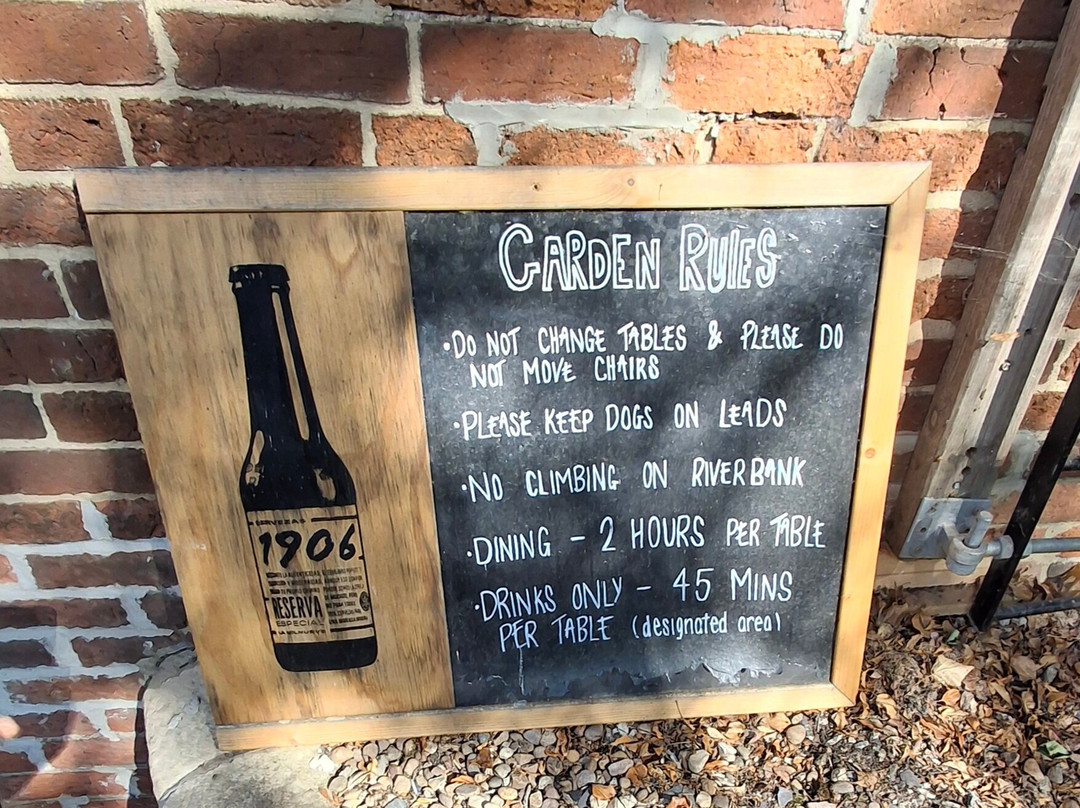 GARDEN RULES
•DO NOT CHANGE TABLES & PLEASE DO
NOT MOVE CHAIRS
•PLEASE KEEP DOGS ON LEADS
•NO CLIMBING ON RIVERBANK
•DINING - 2 HOURS PER TABLE
•DRINKS ONLY - 45 MINS
PER TABLE (designated area)
CERVEZAS
1906
RESERVA
ESPECIAL